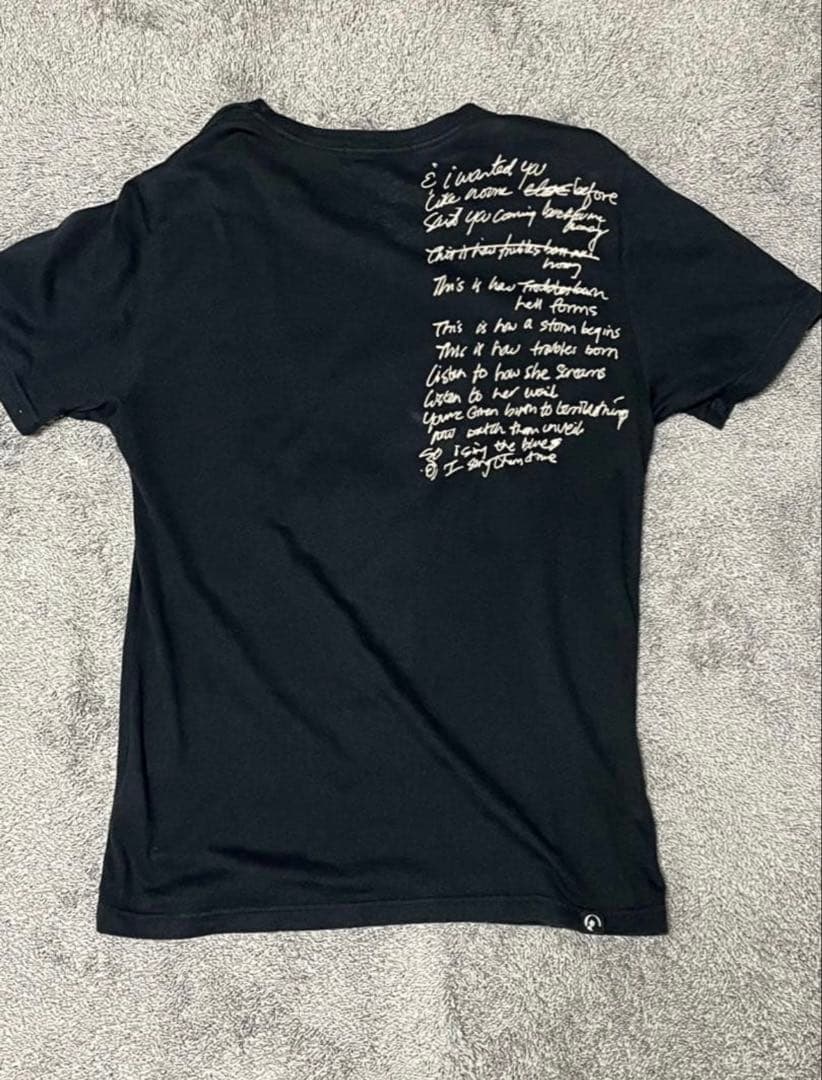 & i wanted you
like none else before
Said you coming back
away
This is how troubles born
This is how troubles born
hell forms
This is how a storm begins
This is how troubles born
Listen to how she screams
Listen to her wail
Given born to
now watch them unveil
So i sing the blues
I sing them